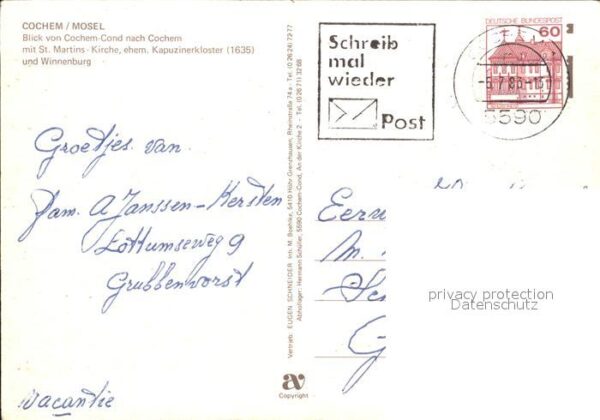 COCHEM / MOSEL
Blick von Cochem-Cond nach Cochem
mit St. Martins-Kirche, ehem. Kapuzinerkloster (1635)
und Winnenburg
Groetjes van
fam. A Janssen-Kersten
Lottumseweg 9
Grubbenvorst
vacantie
Vertrieb: EUGEN SCHNEIDER Inh. M. Boehlke, 5410 Höhr Grenzhausen, Rheinstraße 74a · Tel. (0 26 24) 72 77
Abhollager: Hermann Schüller, 5590 Cochem-Cond, An der Kirche 2 - Tel. (0 26 71) 32 68
av
Copyright
Schreib
mal
wieder
Post
DEUTSCHE BUNDESPOST
60
5590
M.
privacy protection
Datenschutz